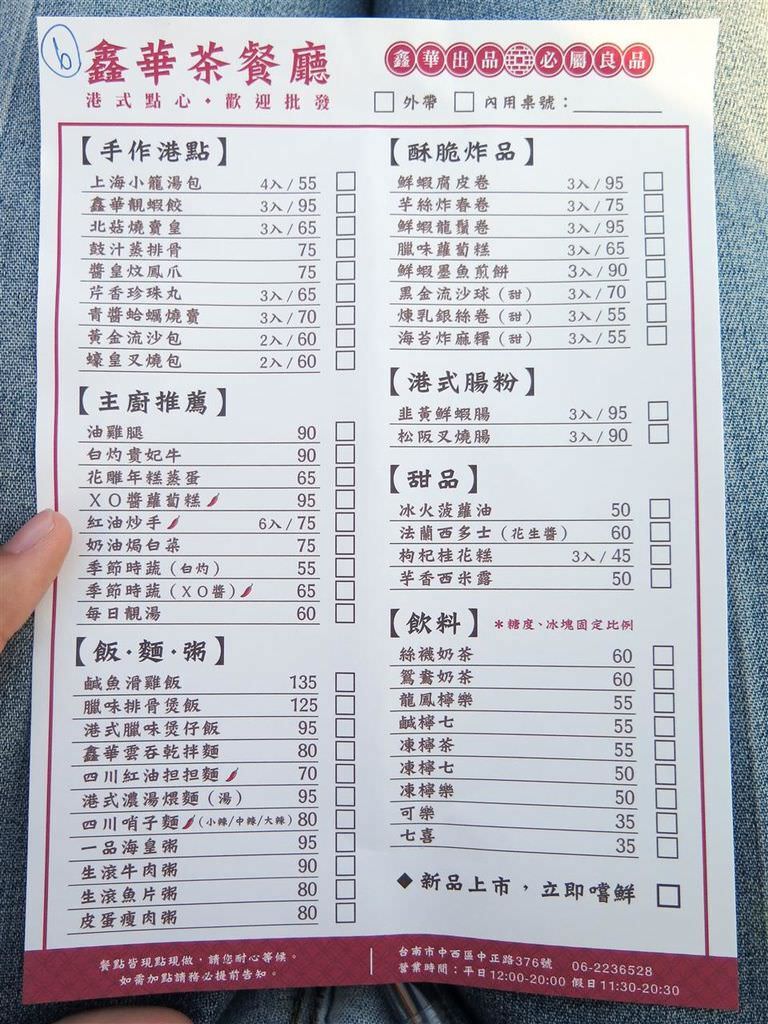 6
鑫華茶餐廳
港式點心・歡迎批發
鑫華出品 必屬良品
外帶 內用桌號：
【手作港點】
上海小籠湯包 4入/55
鑫華靚蝦餃 3入/95
北菇燒賣皇 3入/65
鼓汁蒸排骨 75
醬皇炆鳳爪 75
芹香珍珠丸 3入/65
青醬蛤蠣燒賣 3入/70
黃金流沙包 2入/60
蠔皇叉燒包 2入/60
【主廚推薦】
油雞腿 90
白灼貴妃牛 90
花雕年糕蒸蛋 65
XO醬蘿蔔糕 95
紅油炒手 6入/75
奶油焗白菜 75
季節時蔬（白灼） 55
季節時蔬（XO醬） 65
每日靚湯 60
【飯・麵・粥】
鹹魚滑雞飯 135
臘味排骨煲飯 125
港式臘味煲仔飯 95
鑫華雲吞乾拌麵 80
四川紅油担担麵 70
港式濃湯煨麵（湯） 95
四川哨子麵（小辣/中辣/大辣） 80
一品海皇粥 95
生滾牛肉粥 90
生滾魚片粥 80
皮蛋瘦肉粥 80
【酥脆炸品】
鮮蝦腐皮卷 3入/95
芋絲炸春卷 3入/75
鮮蝦龍鬚卷 3入/95
臘味蘿蔔糕 3入/65
鮮蝦墨魚煎餅 3入/90
黑金流沙球（甜） 3入/70
煉乳銀絲卷（甜） 3入/55
海苔炸麻糬（甜） 3入/55
【港式腸粉】
韭黃鮮蝦腸 3入/95
松阪叉燒腸 3入/90
【甜品】
冰火菠蘿油 50
法蘭西多士（花生醬） 60
枸杞桂花糕 3入/45
芋香西米露 50
【飲料】 ＊糖度、冰塊固定比例
絲襪奶茶 60
鴛鴦奶茶 60
龍鳳檸樂 55
鹹檸七 55
凍檸茶 55
凍檸七 50
凍檸樂 50
可樂 35
七喜 35
◆新品上市，立即嚐鮮
餐點皆現點現做，請您耐心等候。
如需加點請務必提前告知。
台南市中西區中正路376號 06-2236528
營業時間：平日12:00-20:00 假日11:30-20:30